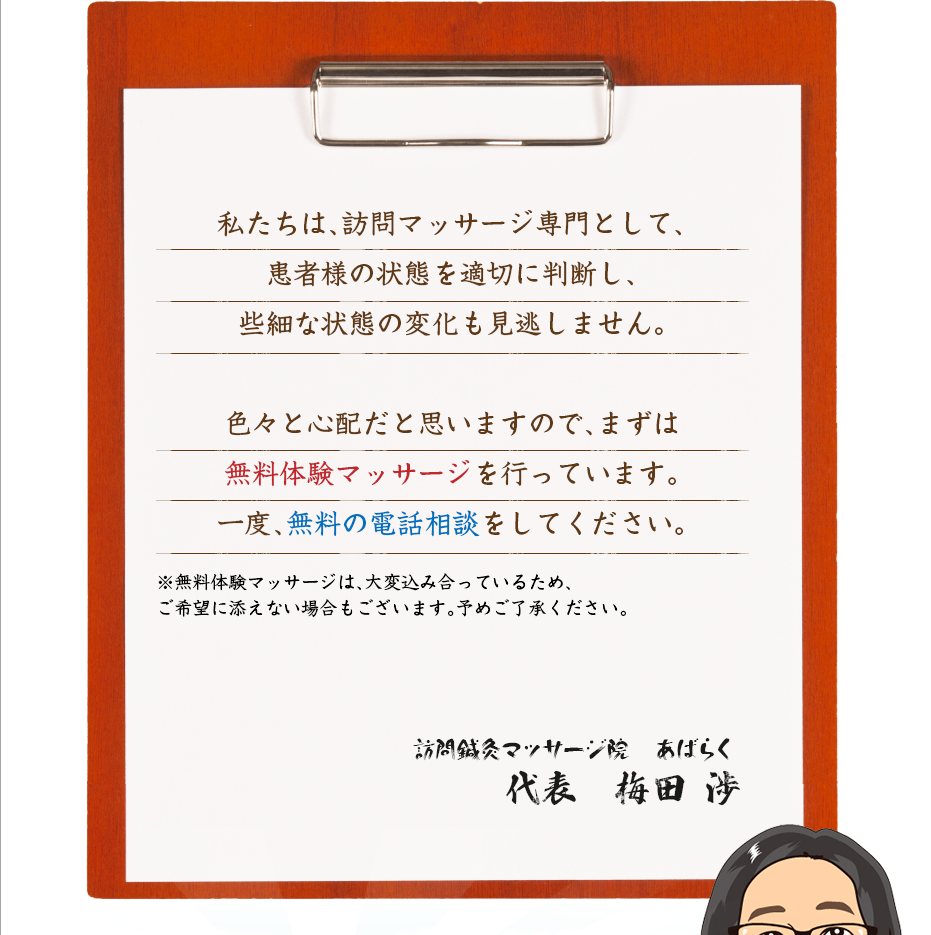 私たちは、訪問マッサージ専門として、
患者様の状態を適切に判断し、
些細な状態の変化も見逃しません。
色々と心配だと思いますので、まずは
無料体験マッサージを行っています。
一度、無料の電話相談をしてください。
※無料体験マッサージは、大変込み合っているため、
ご希望に添えない場合もございます。予めご了承ください。
訪問鍼灸マッサージ院 あばらく
代表 梅田 渉